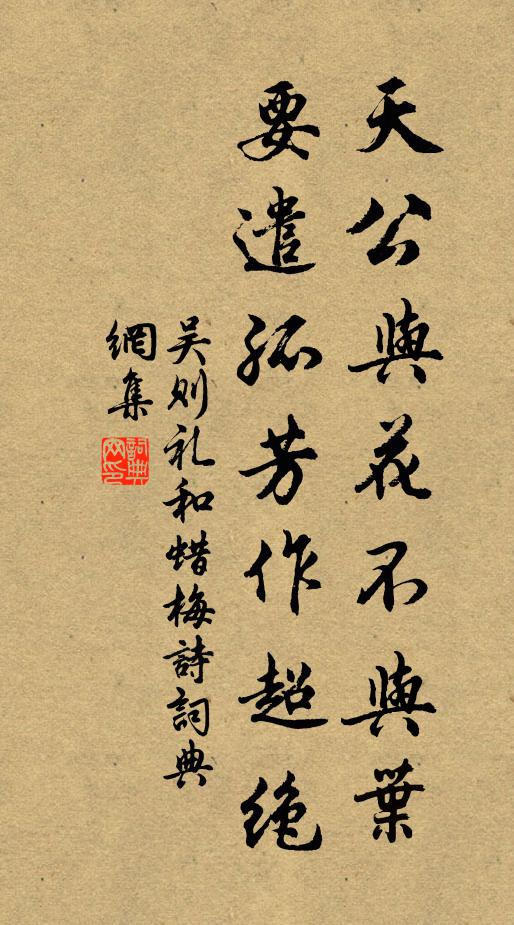 天公與花不與葉
要遣孤芳作超绝
吴则礼和蜡梅詩詞典
網集
詞典网印